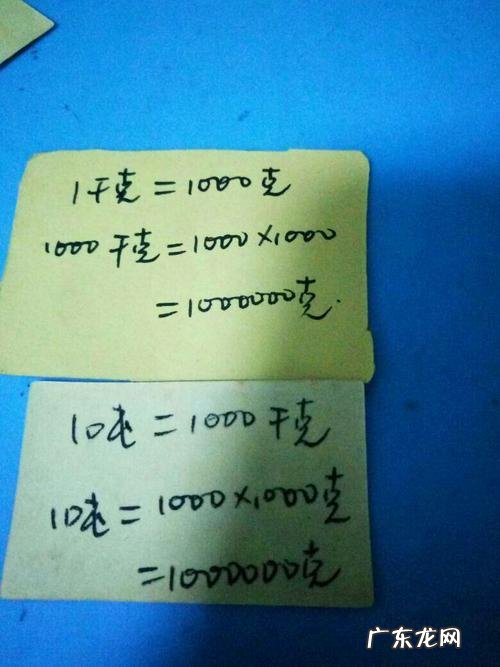 1千克=1000克
1000千克=1000×1000
=1000000克.
10吨=1000千克
10吨=1000×1000克
=1000000克
广东龙网